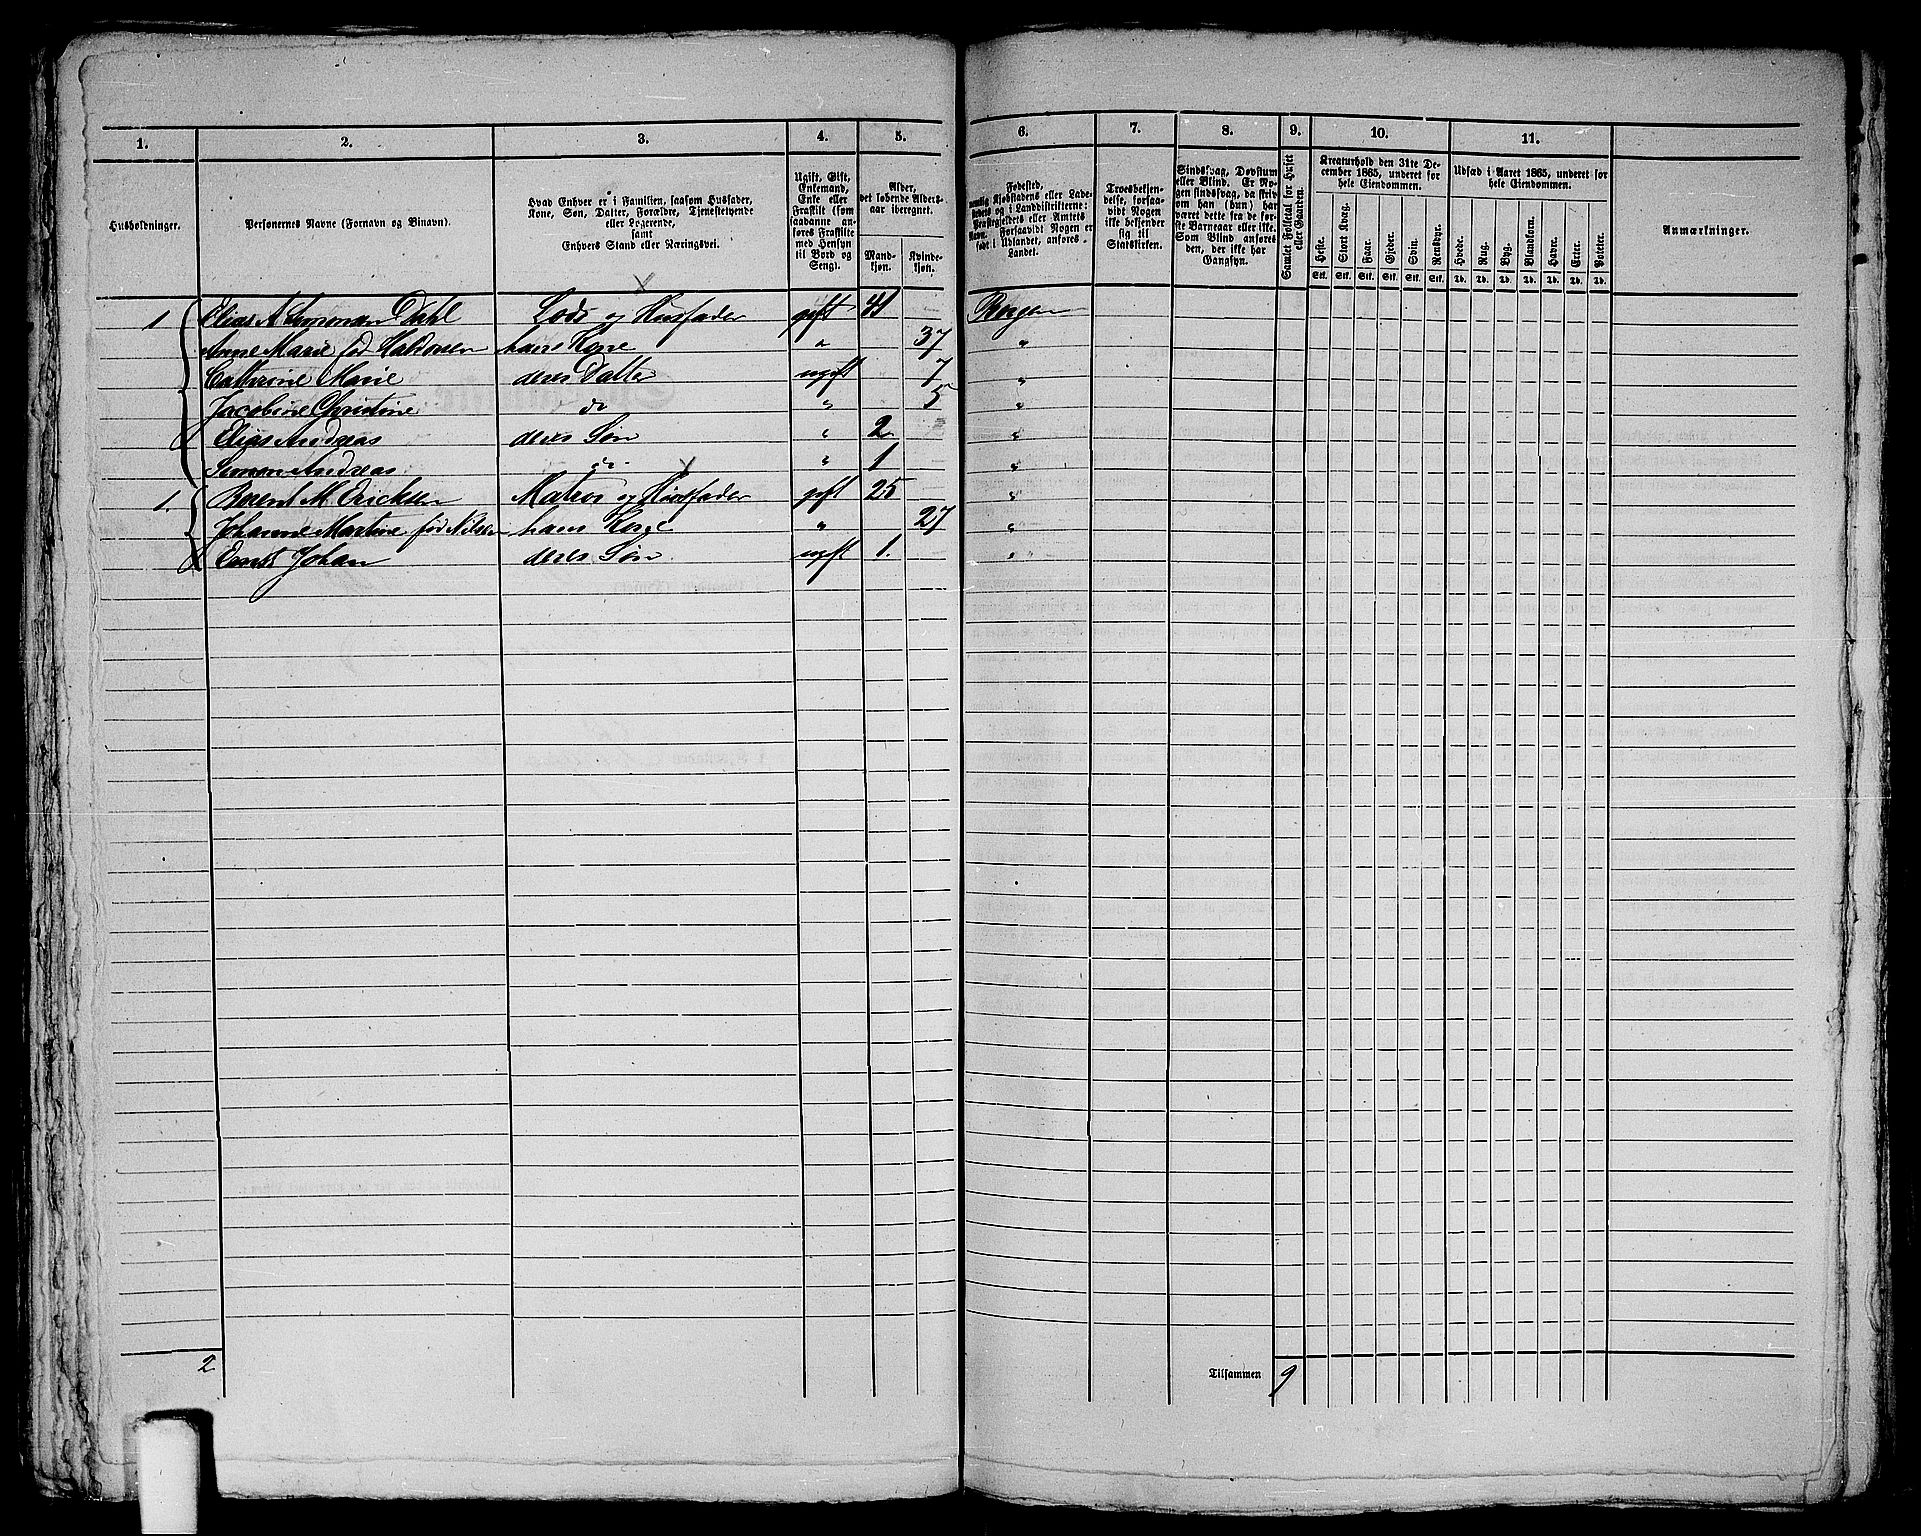 1. 2. 3. 4. 5. 6. 7. 8. 9. 10. 11.
Husholdninger.
Personernes Navne (Fornavn og Binavn).
Hvad Enhver er i Familien, saasom Husfader,
Kone, Søn, Datter, Forældre, Tjenestetyende
eller Logerende,
samt
Enhvers Stand eller Næringsvei.
Ugift, Gift,
Enkemand,
Enke eller
Fraskilt (som
saadanne anføres
Fraskilte
med Hensyn
til Bord og
Seng).
Alder,
det løbende Alders-
aar iberegnet.
Mand-
kjøn.
Kvinde-
kjøn.
Fødested,
nemlig Kjøbstadens eller Lade-
stedets og i Landdistrikterne:
Præstegjeldets eller Amtets
Navn. Forsaavidt Nogen er
født i Udlandet, anføres
Landet.
Troesbekjen-
delse, forsaa-
vidt Nogen
ikke bekjender
sig til
Statskirken.
Sindssvag, Døvstum
eller Blind. Er No-
gen sindssvag, da skriv
om han (hun) har
været dette fra de før-
ste Barneaar eller ikke.
Som Blind anføres
den, der ikke har
Gangsyn.
Samlet Folketal for Huset
eller Gaarden.
Kreaturhold den 31te De-
cember 1865, underet for
hele Eiendommen.
Heste. Stort Kvæg. Faar. Gjeder. Svin. Rensdyr.
Stk. Stk. Stk. Stk. Stk. Stk.
Udsæd i Aaret 1865, underet for
hele Eiendommen.
Hvede. Rug. Byg. Blandkorn. Havre. Erter. Poteter.
Td. Td. Td. Td. Td. Td. Td.
Anmærkninger.
1 Elias A Simonsen Dahl Lods og Husfader gift 41 Bergen
Anne Marie fød hans Kone " 37 "
Cathrine Marie deres Datter ugift 7 "
Jacobine Christine do " 5 "
Elias Andreas deres Søn " 2 "
Simon Andreas do " 1 "
1. Berent M. Ericksen Matros og Husfader gift 25 "
Johanne Martine fød Nilsen hans Kone " 27 "
Johan deres Søn ugift 1. "
2
Tilsammen 9